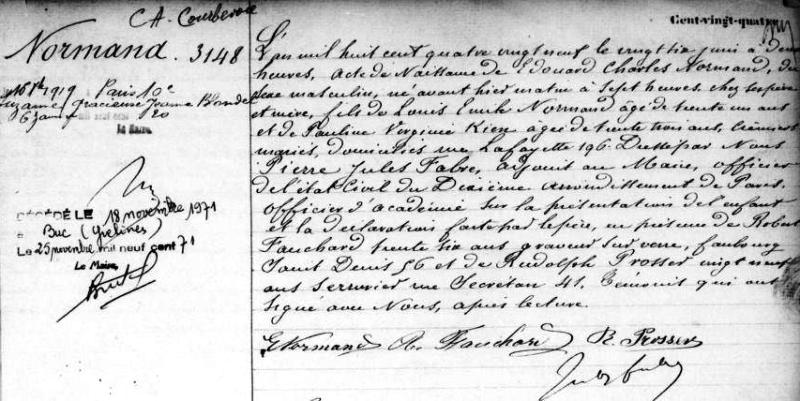 CA. Courbevoie
Normand. 3148
16 1919 Paris 10e
Suzanne Gracienne Jeanne Blondel
6 janv 20
le Maire.
DÉCÉDÉ LE 18 novembre 1971
à Buc (Yvelines)
Le 25 novembre mil neuf cent 71
Le Maire,
Cent-vingt-quatre
L'an mil huit cent quatre vingt neuf le vingt six juin à deux
heures, acte de Naissance de Edouard Charles Normand, du
sexe masculin, né avant hier matin à Sept heures, chez ses père
et mère, fils de Louis Emile Normand âgé de trente un ans
et de Pauline Virginie Kien âgée de trente trois ans, Crémiers
mariés, domiciliés rue Lafayette 196. Dressé par Nous
Pierre Jules Fabre, adjoint au Maire, officier
de l'état Civil du Dixième arrondissement de Paris.
officier d'académie sur la présentation de l'enfant
et la déclaration faite par le père, en présence de Robert
Fauchard trente six ans graveur sur verre, faubourg
Saint Denis 56 et de Rudolph Prosser vingt neuf
ans Serrurier rue Secretan 41, Témoins qui ont
Signé avec Nous, après lecture.
E Normand A. Fauchard R. Prosser
Jules Fabre